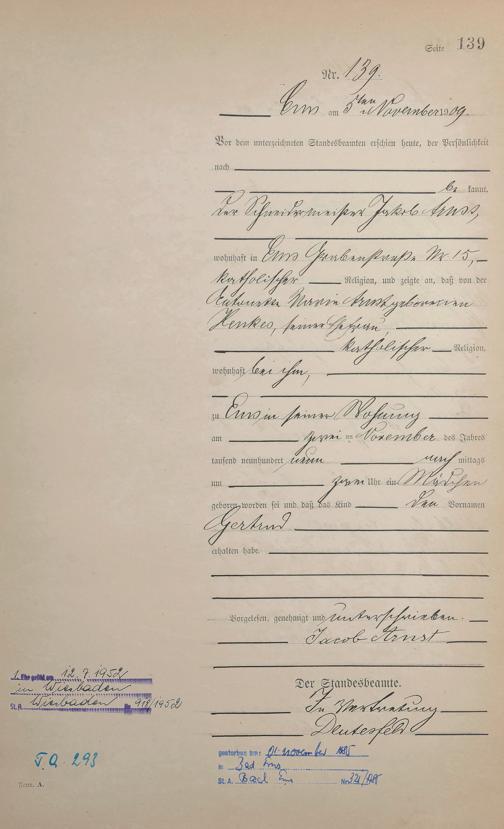 Seite 139
Nr. 139.
Ems am 5ten November 1909.
Vor dem unterzeichneten Standesbeamten erschien heute, der Persönlichkeit
nach
be kannt,
der Schneidermeister Jakob Arnst,
wohnhaft in Ems Grabenstraße Nr 15,
katholischer Religion, und zeigte an, daß von der
Antonetta Maria Arnst geborenen
Henkes, seiner Ehefrau,
katholischer Religion,
wohnhaft bei ihm,
zu Ems in seiner Wohnung
am zwei ten November des Jahres
tausend neunhundert neun nach mittags
um zwei Uhr ein Mädchen
geboren worden sei und daß das Kind den Vornamen
Gertrud
erhalten habe.
Vorgelesen, genehmigt und unterschrieben.
Jacob Arnst
Der Standesbeamte.
In Vertretung
1. Ehe geschl. am 12.7.1952
in Wiesbaden
St. A. Wiesbaden Nr. 918/1952
gestorben am: 01. November 1985
in Bad Ems
St. A. Bad Ems Nr.
T.A. 293
Form. A.